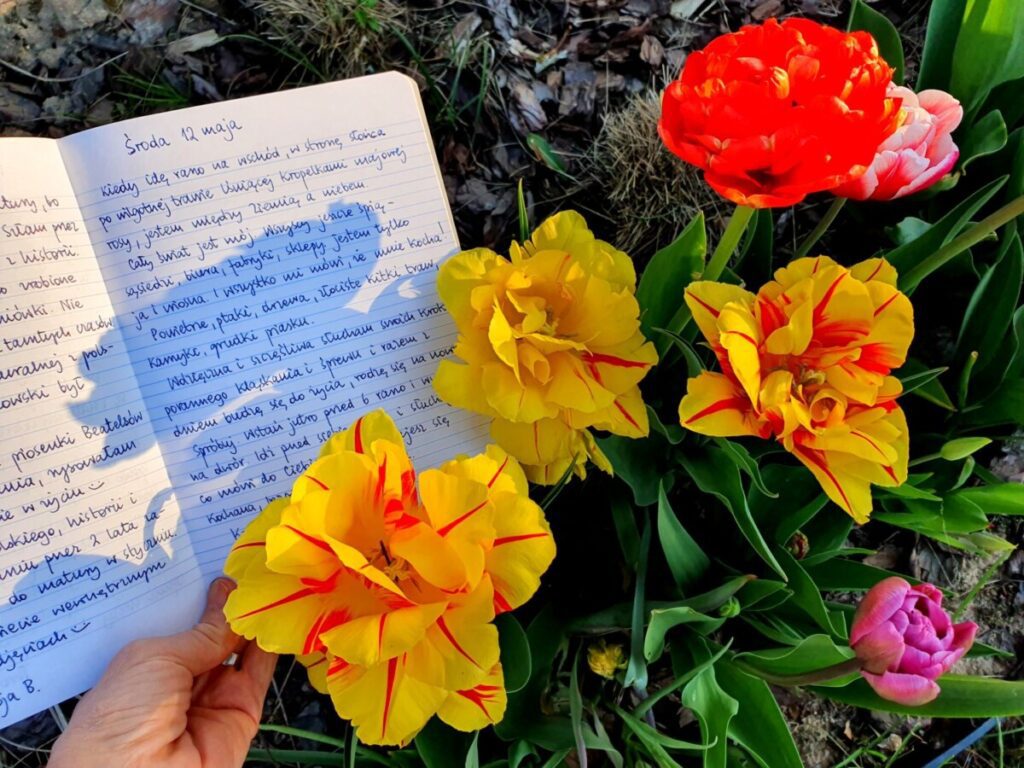 atury, bo
z historii.
niówki. Nie
z tamtych czasów
z pols-
był
piosenki Beatelsów
rysowałam
historii i
przez 2 lata na
do matury w styczniu.
wewnętrznym
B.
Środa 12 maja
Kiedy idę rano na wschód, w stronę słońca
po wilgotnej trawie lśniącej kropelkami majowej
rosy, jestem między ziemią a niebem.
Cały świat jest mój. Wszyscy jeszcze śpią -
sąsiedzi, biura, fabryki, sklepy. Jestem tylko
ja i wiosna. I wszystko mi mówi, że mnie kocha!
Powietrze, ptaki, drzewa, złociste kitki traw,
kamyki, grudki piasku.
Wdzięczna i szczęśliwa słucham swoich krok
porannego klaskania i śpiewu i razem z
dniem budzę się do życia, rodzę się na now
Spróbuj wstać jutro przed 6 rano i w
na dwór. Idź przed siebie i słuch
co mówi do Ciebie jesz się
Kochana,